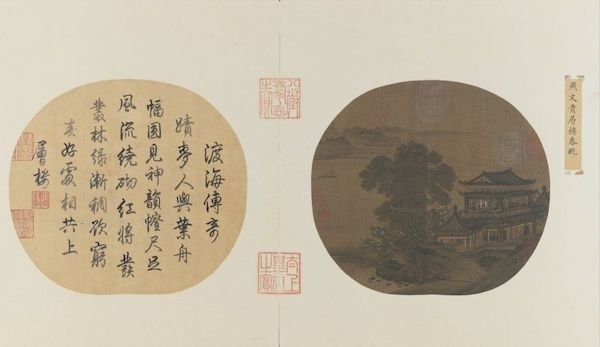 燕文貴層樓春眺
渡海傳奇
蹟夢人與葉舟
幅圓見神韻尺足
風流繞砌紅將發
叢林綠漸稠欲窮
春好處相共上
層樓